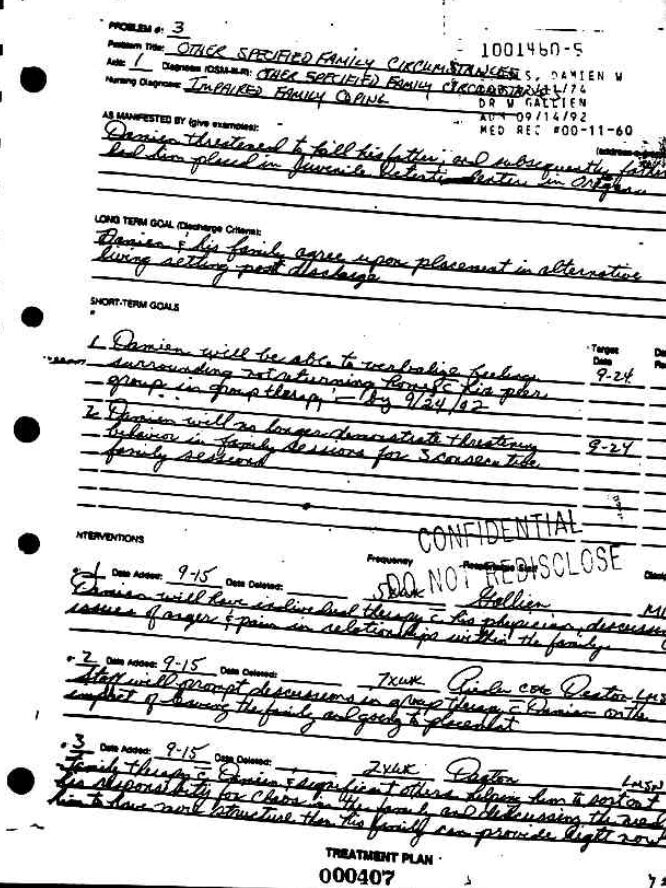 PROBLEM #: 3
Problem Title: OTHER SPECIFIED FAMILY CIRCUMSTANCES
1001460-5
Axis: 1 Diagnosis (DSM-III-R): OTHER SPECIFIED FAMILY CIRCUMSTANCES
S, DAMIEN W
/74
Nursing Diagnosis: IMPAIRED FAMILY COPING
DR W GALLIEN
ADM 09/14/92
MED REC #00-11-60
AS MANIFESTED BY (give examples):
Damien threatened to kill his father, and subsequently father
had him placed in Juvenile Detention Center in Oregon
LONG TERM GOAL (Discharge Criteria):
Damien & his family agree upon placement in alternative
living setting post discharge
SHORT-TERM GOALS
Target
Date
1. Damien will be able to verbalize feelings
surrounding not returning home c his peer
9-24
group in group therapy - by 9/24/92
2. Damien will no longer demonstrate threatening
behavior in family sessions for 3 consecutive
9-24
family sessions
CONFIDENTIAL
DO NOT REDISCLOSE
INTERVENTIONS
Frequency Responsible Staff
1 Date Added: 9-15 Date Deleted: 5XWK Gallien
Damien will have individual therapy c his physician, discussing
issues of anger & pain in relationships within the family.
2 Date Added: 9-15 Date Deleted: 7XWK
Staff will prompt discussions in group therapy c Damien on the
impact of leaving the family and going to placement
3 Date Added: 9-15 Date Deleted: 2XWK LMSW
Family therapy c Damien & significant others helping him to sort out
his responsibility for chaos in the family and discussing the need
him to have more structure than his family can provide right now
TREATMENT PLAN
000407